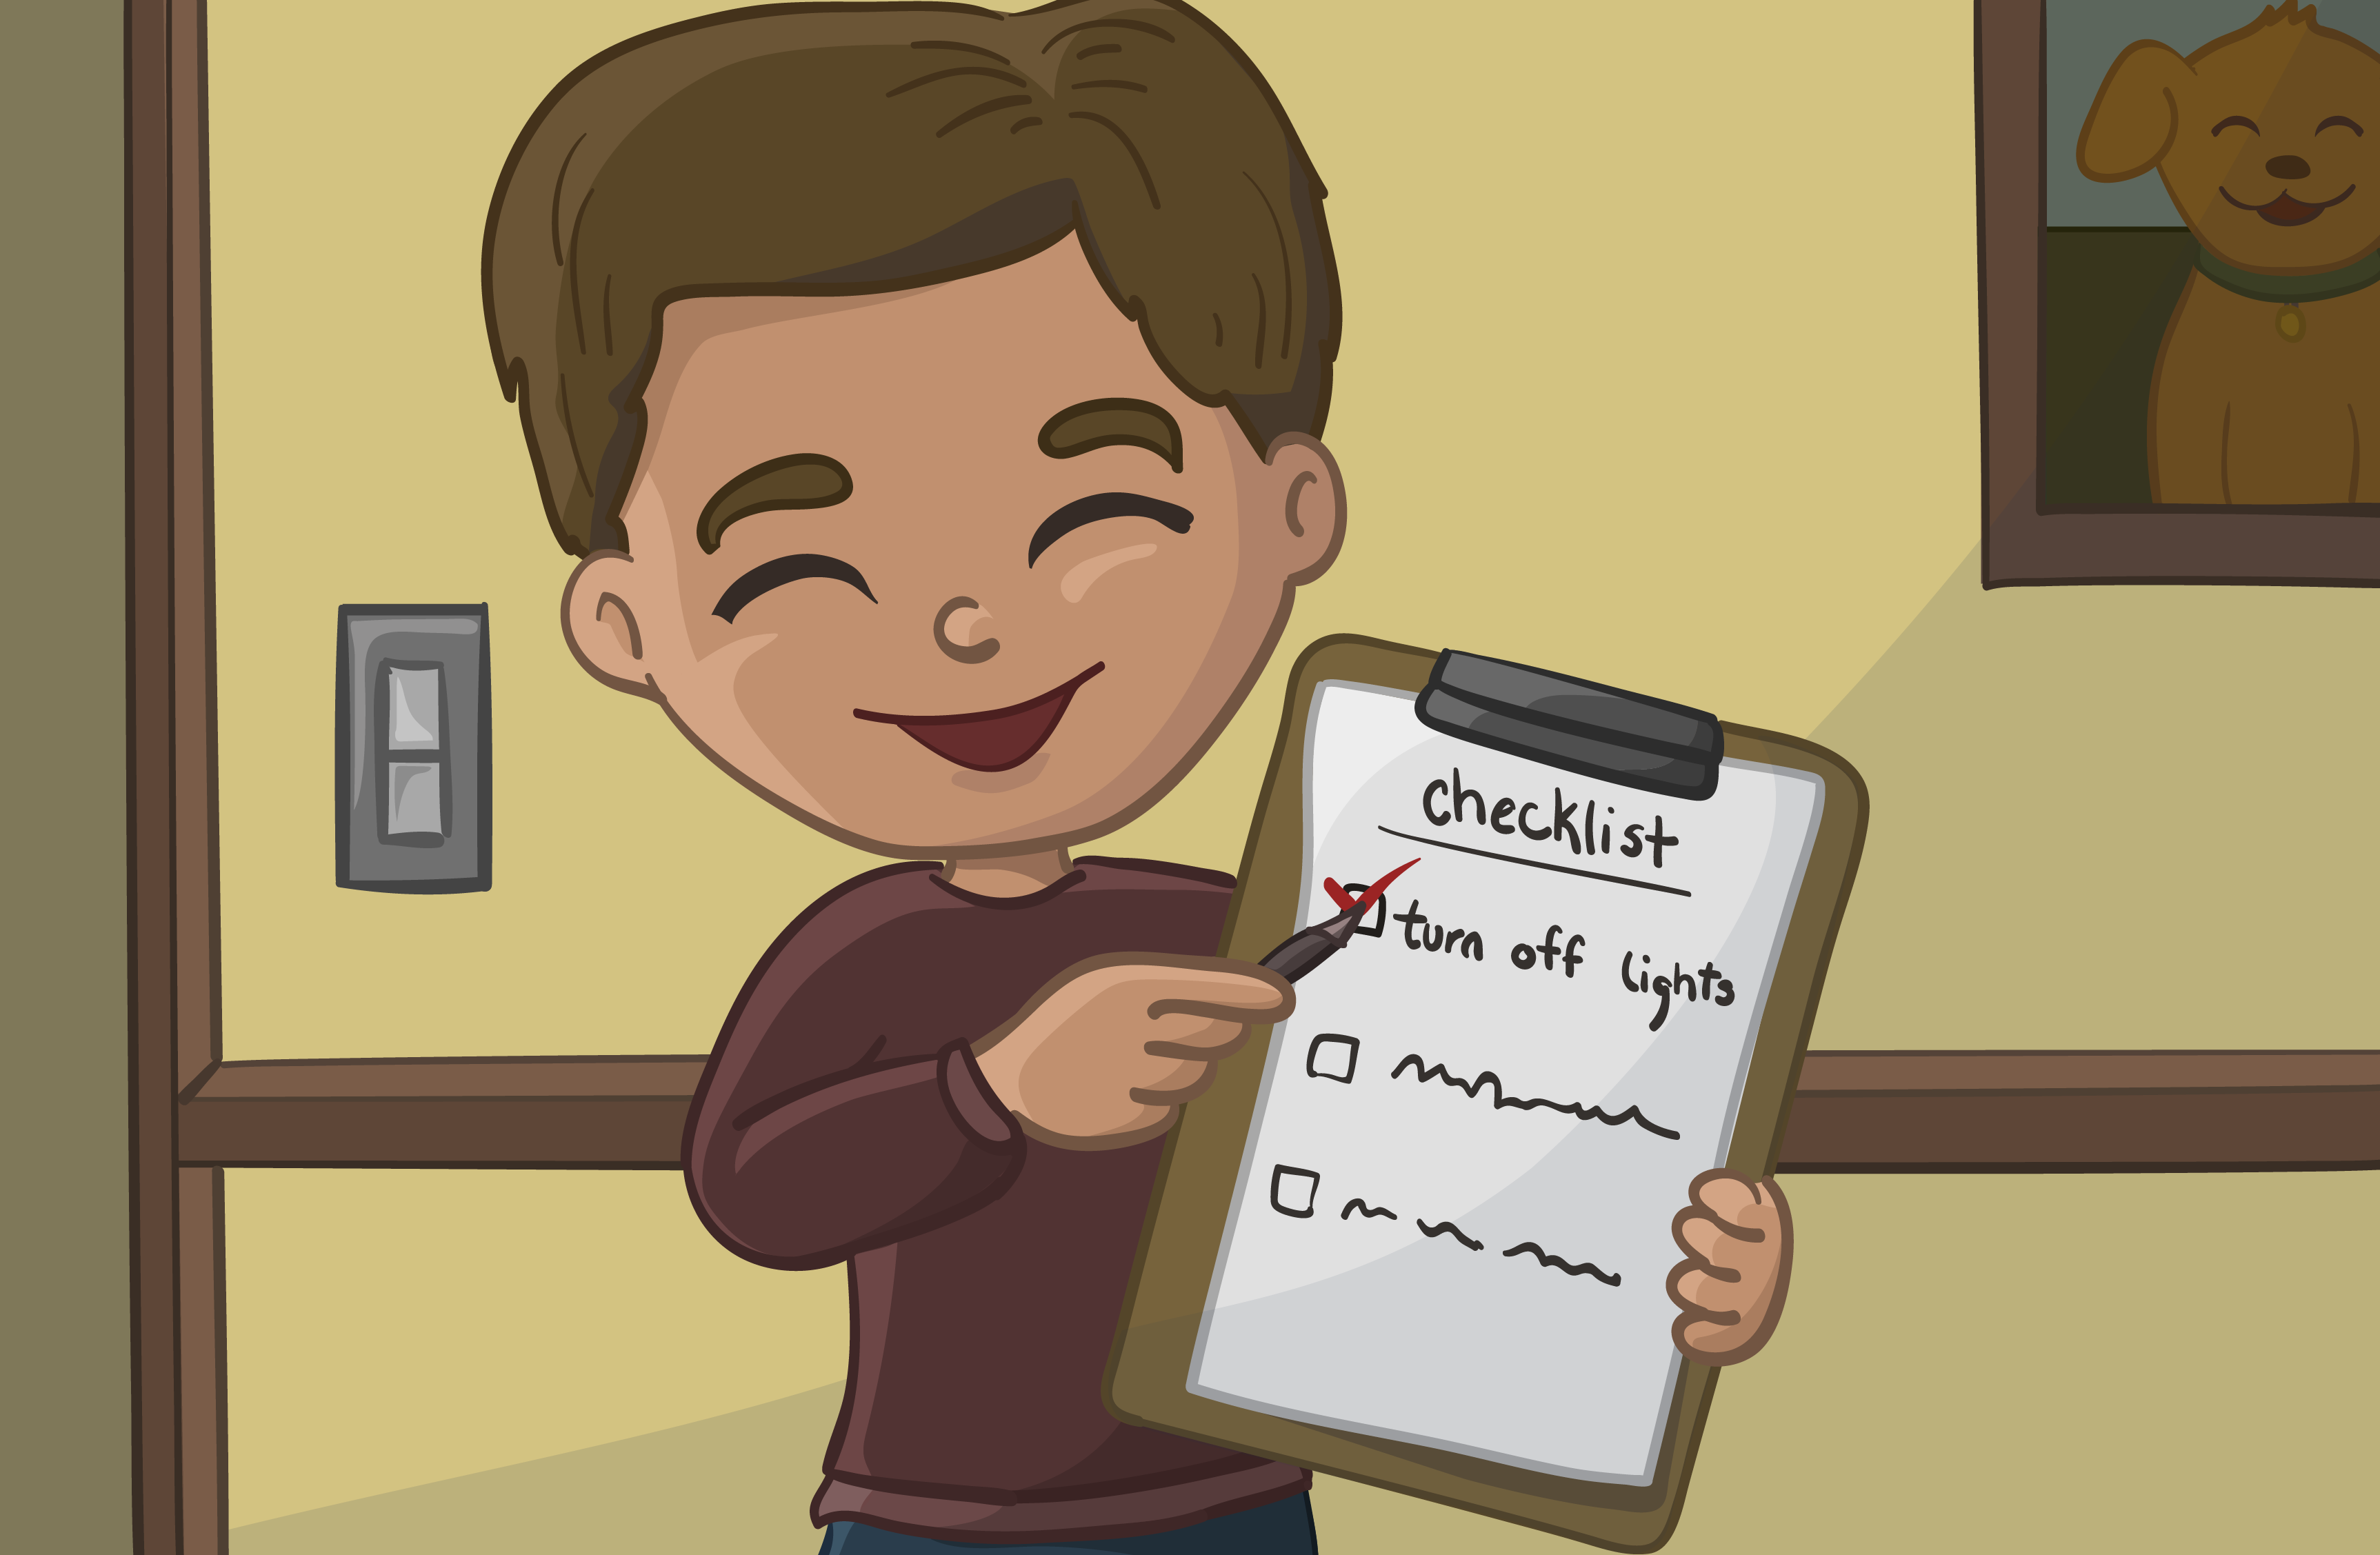 checklist
turn off lights